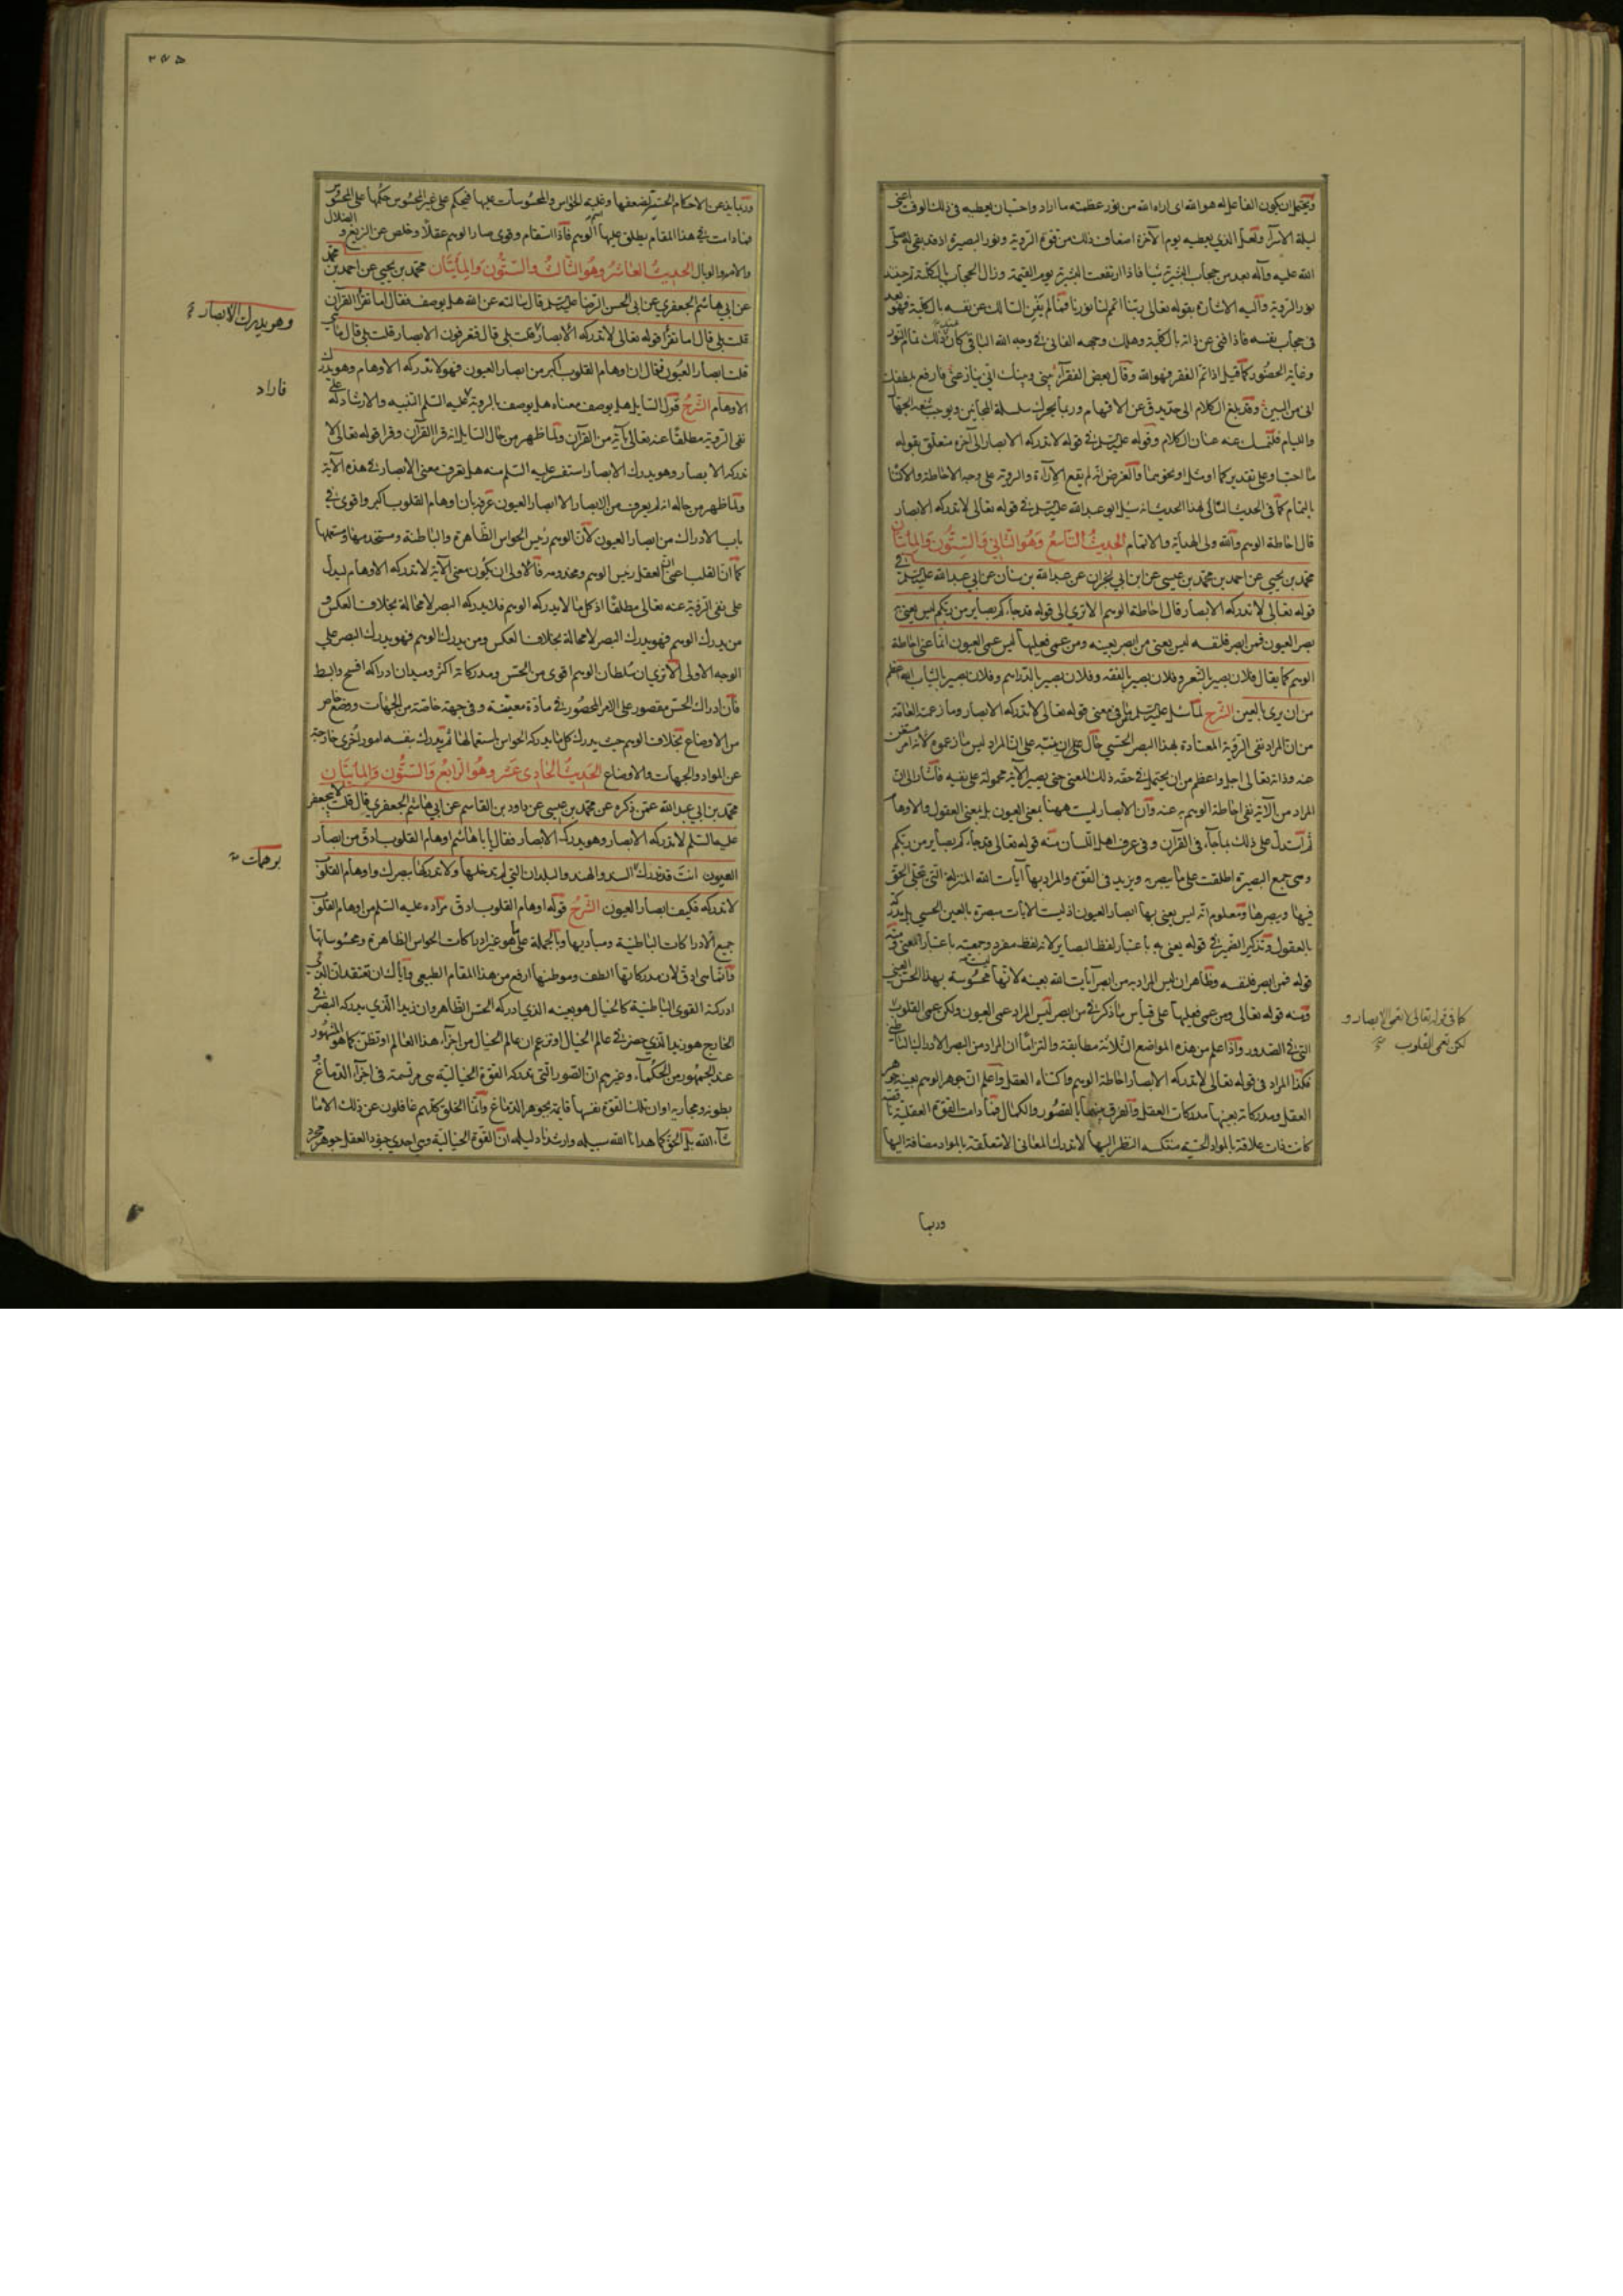 ويحتمل ان يكون الفاعل له هو الله اى اراه الله من نور عظمته ما اراد واحب ان يعطيه فى ذلك الوقت اعنى
ليلة الاسرآء ولعل الذي يعطيه يوم الآخرة اضعاف ذلك من قوة الروية ونور البصيرة اذ قد بقى له صلى
الله عليه وآله بعد من حجاب البشرية شيأ فاذا ارتفعت البشرية يوم القيمة وزال الحجاب بالكلية
نور الروية واليه الاشارة بقوله تعالى ربنا اتمم لنا نورنا فما لم يفن السالك عن نفسه بالكلية فهو بعد
فى حجاب نفسه فاذا فنى عن ذاته بالكلية وهلك وجهه الفانى فى وجه الله الباقى كان ذلك تمام النور
وغاية الحضور كما قيل اذا تم الفقر فهو الله وقال بعض الفقرآء بينى وبينك انى ينازعنى فارفع بلطفك
انى من البين وقد بلغ الكلام الى حد يدق عن الافهام وربما يحرك سلسلة المجانين ويوجب
فلنمسك عنه عنان الكلام وقوله عليه السلم فى قوله لا تدركه الابصار الى آخره متعلق بقوله
ما احب او على تقدير كما او مثل او نحو هما والغرض انه لم يقع الارآءة والروية على وجه الاحاطة والاكتناه
بالتمام كما فى الحديث التالى لهذا الحديث انه سئل ابو عبد الله عليه السلم فى قوله تعالى لا تدركه الابصار
قال احاطة الوهم والله ولى الهداية والاتمام الحديث التاسع وهو الثانى والستون والمأتان
محمد بن يحيى عن احمد بن محمد بن عيسى عن ابن ابي نجران عن عبد الله بن سنان عن ابي عبد الله عليه السلم فى
قوله تعالى لا تدركه الابصار قال احاطة الوهم الا ترى الى قوله قد جآءكم بصاير من ربكم ليس يعنى
بصر العيون فمن ابصر فلنفسه ليس يعنى من ابصر بعينه ومن عمى فعليها ليس عمى العيون انما عنى احاطة
الوهم كما يقال فلان بصير بالشعر وفلان بصير بالفقه وفلان بصير بالدراهم وفلان بصير بالثياب الله اعظم
من ان يرى بالعين الشرح لما سئل عليه السلم عن معنى قوله تعالى لا تدركه الابصار وما زعمته العامة
من ان المراد نفى الروية المعتادة بهذا البصر الحسي حاول على ان ينبه على ان المراد ليس ما زعموه لانه امر
عنه وذاته تعالى اجل واعظم من ان يحتمل فى حقه ذلك المعنى حتى يصير الآية محمولة على نفيه فاشار الى ان
المراد من الآية نفى احاطة الوهم به عنه وان الابصار ليست ههنا بمعنى العيون بل بمعنى العقول والاوهام
ثم استدل على ذلك بما جآء فى القرآن وفى عرف اهل اللسان منه قوله تعالى قد جآءكم بصاير من ربكم
وهى جمع البصيرة اطلقت على ما يبصر به ويزيد فى القوة والمراد بها آيات الله المنزلة التى تجلى الحق
فيها ويبصرها ومعلوم انه ليس يعنى بها ابصار العيون اذ ليست الآيات مبصرة بالعين الحسي بل يدرك
بالعقول وتذكير الضمير فى قوله يعنى به باعتبار لفظ البصاير لانه لفظ مفرد وجمعيته باعتبار المعنى ومنه
قوله فمن ابصر فلنفسه وظاهر ان ليس المراد به من ابصر آيات الله بعينه لانها ليست محسوسة بهذا الحس العينى
ومنه قوله تعالى ومن عمى فعليها على قياس ما ذكر فى من ابصر ليس المراد عمى العيون ولكن عمى القلوب
التى فى الصدور واذا علم من هذه المواضع الثلاثة مطابقة والتزاما ان المراد من البصر الادراك الباطنى
فكذا المراد فى قوله تعالى لا تدركه الابصار احاطة الوهم واكتناه العقل واعلم ان جوهر الوهم بعينه جوهر
العقل ومدركاته بعينها مدركات العقل والفرق بينهما بالقصور والكمال فما دامت القوة العقلية ناقصة
كانت ذات علاقة بالمواد الحسية منتكسة النظر اليها لا تدرك المعانى الا متعلقة بالمواد مضافة اليها
وربما
كما فى قوله تعالى لا تعمى الابصار و
لكن تعمى القلوب
٢٧٥
وربما يذعن الاحكام الحسية لضعفها وغلبة الحواس والمحسوسات عليها فيحكم على غير المحسوس حكمها على المحسوس
فما دامت فى هذا المقام يطلق عليها اسم الوهم فاذا استقام وقوى صار الوهم عقلا وخلص عن الزيغ والضلال
والامر والوبال الحديث العاشر وهو الثالث والستون والمأتان محمد بن يحيى عن احمد بن محمد
عن ابي هاشم الجعفري عن ابى الحسن الرضا عليه السلم قال سألته عن الله هل يوصف فقال اما تقرأ القرآن
قلت بلى قال اما تقرأ قوله تعالى لا تدركه الابصار قلت بلى قال فتعرفون الابصار قلت بلى قال ما هى
قلت ابصار العيون فقال ان اوهام القلوب اكبر من ابصار العيون فهو لا تدركه الاوهام وهو يدرك
الاوهام الشرح قول السايل هل يوصف معناه هل يوصف بالروية عليه السلم التنبيه والارشاد له على
نفى الروية مطلقا عنه تعالى بآية من القرآن ولما ظهر من حال السايل انه قرا القرآن وقرا قوله تعالى لا
تدركه الابصار وهو يدرك الابصار استفسر عليه السلم منه هل يعرف معنى الابصار فى هذه الآية
ولما ظهر من حاله انه لم يعرف من الابصار الا ابصار العيون عرفه بان اوهام القلوب اكبر واقوى فى
باب الادراك من ابصار العيون لان الوهم رئيس الحواس الظاهرة والباطنة ومستخدمها ومستعملها
كما ان القلب اعنى العقل رئيس الوهم ومخدومه فالاولى ان يكون معنى الآية لا تدركه الاوهام ليدل
على نفى الروية عنه تعالى مطلقا اذ كل ما لا يدركه الوهم فلا يدركه البصر لا محالة بخلاف العكس و
من يدرك الوهم فهو يدرك البصر لا محالة بخلاف العكس ومن يدرك الوهم فهو يدرك البصر على
الوجه الاولى الا ترى ان سلطان الوهم اقوى من الحس ومدركاته اكثر وميدان ادراكه افسح وابسط
فان ادراك الحس مقصور على الامر المحصور فى مادة معينة وفى جهة خاصة من الجهات ووضع خاص
من الاوضاع بخلاف الوهم حيث يدرك كل ما يدركه الحواس باستعمالها ثم يدرك بنفسه امور اخرى خارجة
عن المواد والجهات والاوضاع الحديث الحادى عشر وهو الرابع والستون والمأتان
محمد بن ابي عبد الله عمن ذكره عن محمد بن عيسى عن داود بن القاسم عن ابي هاشم الجعفري قال قلت لابي جعفر
عليه السلم لا تدركه الابصار وهو يدرك الابصار فقال يا با هاشم اوهام القلوب ادق من ابصار
العيون انت قد تدرك السند والهند والبلدان التى لم تدخلها ولا تدركها ببصرك واوهام القلوب
لا تدركه فكيف ابصار العيون الشرح قوله اوهام القلوب ادق مراده عليه السلم من اوهام القلوب
جميع الادراكات الباطنية ومباديها وبالجملة على ما هو غير ادراكات الحواس الظاهرة ومحسوساتها
وانما هى ادق لان مدركاتها الطف وموطنها ارفع من هذا المقام الطبيعى واياك ان تعتقد ان الذى
ادركته القوى الباطنية كالخيال هو بعينه الذى ادركه الحس الظاهر وان زيدا الذي يدركه البصر فى
الخارج هو زيد الذي حضر فى عالم الخيال او تزعم ان عالم الخيال من اجزآء هذا العالم او تظن كما هو المشهور
عند الجمهور من الحكمآء وغيرهم ان الصور التى تدركه القوة الخيالية هى مرتسمة فى اجزآء الدماغ و
بطونه ومجاريه او ان تلك القوة نفسها قايمة بجوهر الدماغ وانما الخلق كلهم غافلون عن ذلك الا ما
شآء الله بل الحق كما هدانا الله سبيله وارشدنا دليله ان القوة الخيالية وهى احدى جنود العقل جوهر مجرد
وهو يدرك الابصار
فاراد
برهمات